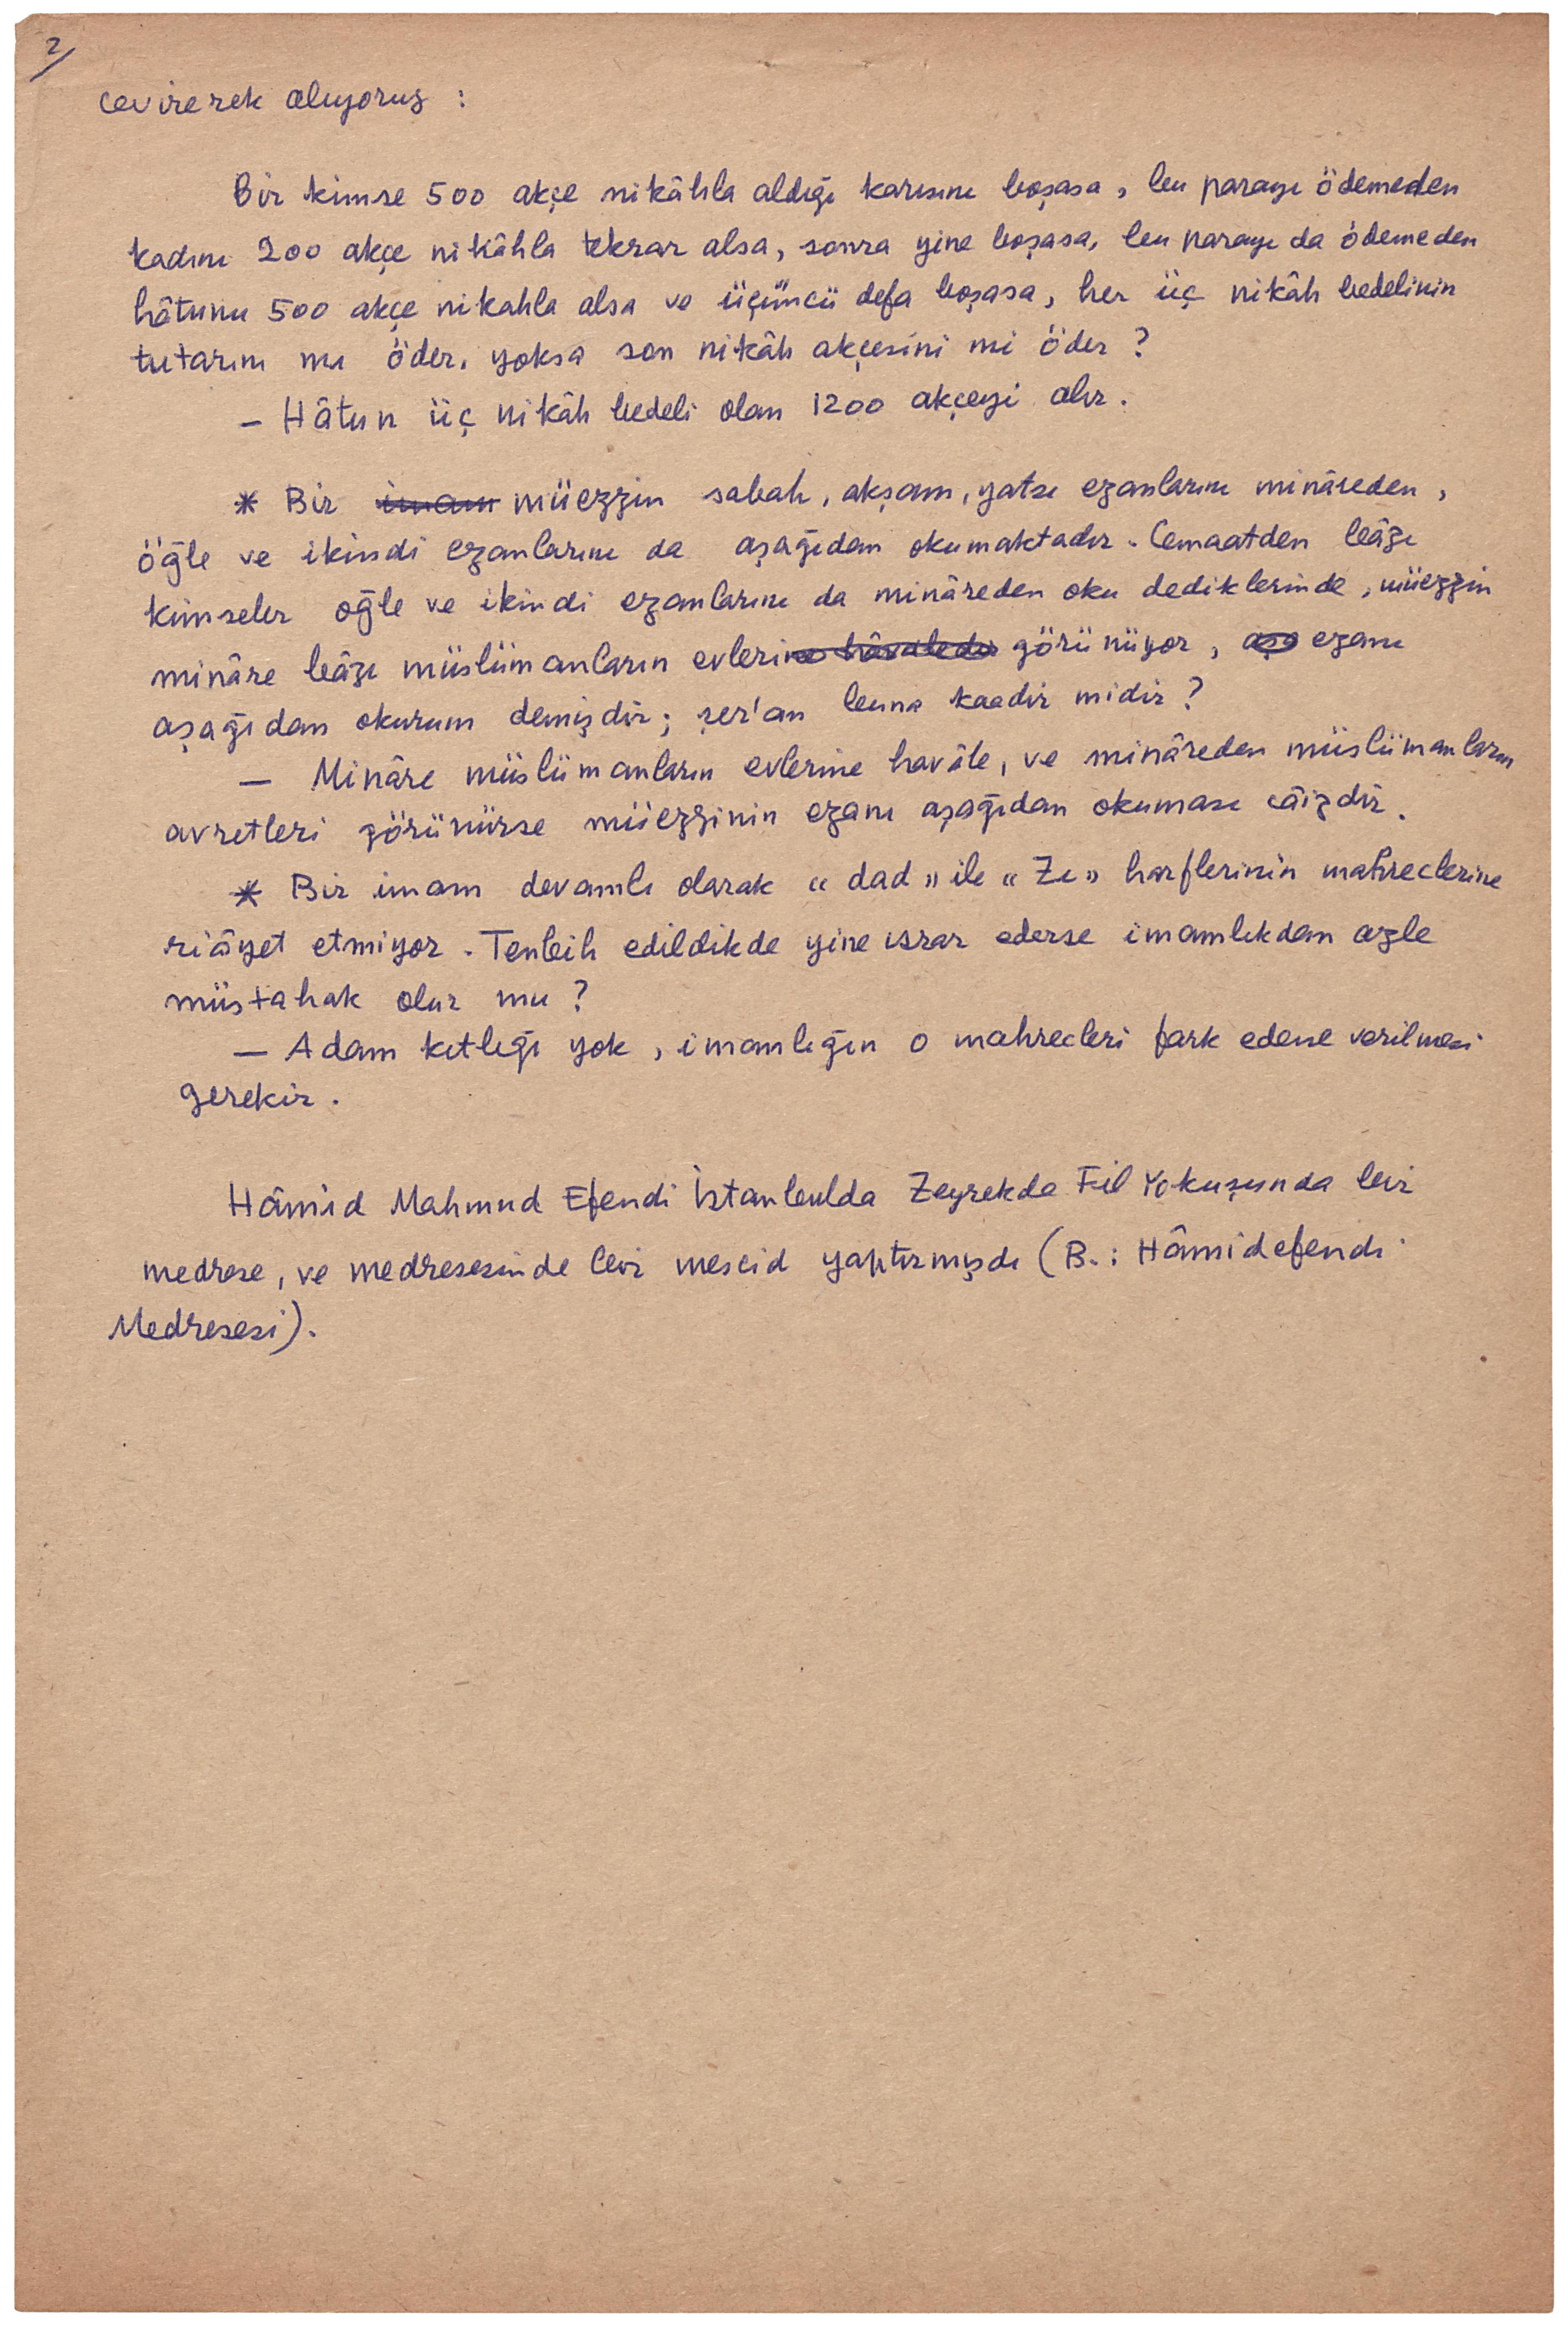 2/
çevirerek alıyoruz :
Bir kimse 500 akçe nikâhla aldığı karısını boşasa, bu parayı ödemeden
kadını 200 akçe nikâhla tekrar alsa, sonra yine boşasa, bu parayı da ödemeden
hâtunu 500 akçe nikahla alsa ve üçüncü defa boşasa, her üç nikâh bedelinin
tutarını mı öder, yoksa son nikâh akçesini mi öder ?
– Hâtun üç nikâh bedeli olan 1200 akçeyi alır.
* Bir imam müezzin sabah, akşam, yatsı ezanlarını minâreden,
öğle ve ikindi ezanlarını da aşağıdan okumaktadır. Cemaatden bâzı
kimseler oğle ve ikindi ezanlarını da minâreden oku dediklerinde, müezzin
minâre bâzı müslümanların evlerine hâvaledir görünüyor, aşa ezanı
aşağıdan okurum demişdir; şer'an buna kaadir midir ?
– Minâre müslümanların evlerine havâle, ve minâreden müslümanların
avretleri görünürse müezzinin ezanı aşağıdan okuması câizdir.
* Bir imam devamlı olarak « dad » ile « Zı » harflerinin mahreclerine
riâyet etmiyor. Tenbih edildikde yine ısrar ederse imamlıkdan azle
müstahak olur mu ?
– Adam kıtlığı yok, imamlığın o mahrecleri fark edene verilmesi
gerekir.
Hâmid Mahmud Efendi İstanbulda Zeyrekde Fil Yokuşunda bir
medrese, ve medresesinde bir mescid yaptırmışdı (B.: Hâmidefendi
Medresesi).